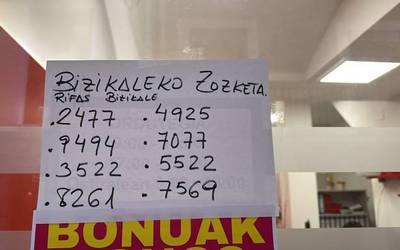 BIZIKALEKO ZOZKETA.
RIFAS BIZIKALE
.2477 .4925
.9494 .7077
.3522 .5522
.8261 .7569
BONUAK